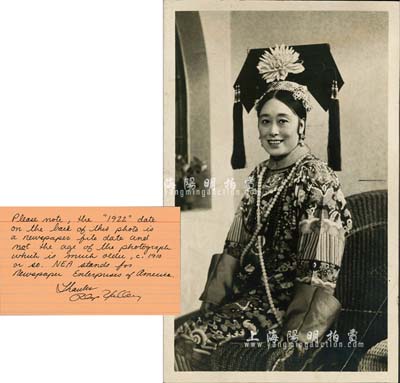 上海陽明拍賣
www.yangmingauction.com
Please note, the "1922" date
on the back of this photo is
a newspaper file date and
not the age of the photograph
which is much older, c. 1910
or so. NEA stands for
Newspaper Enterprises of America.
Thanks
上海陽明拍賣
www.yangmingauction.com